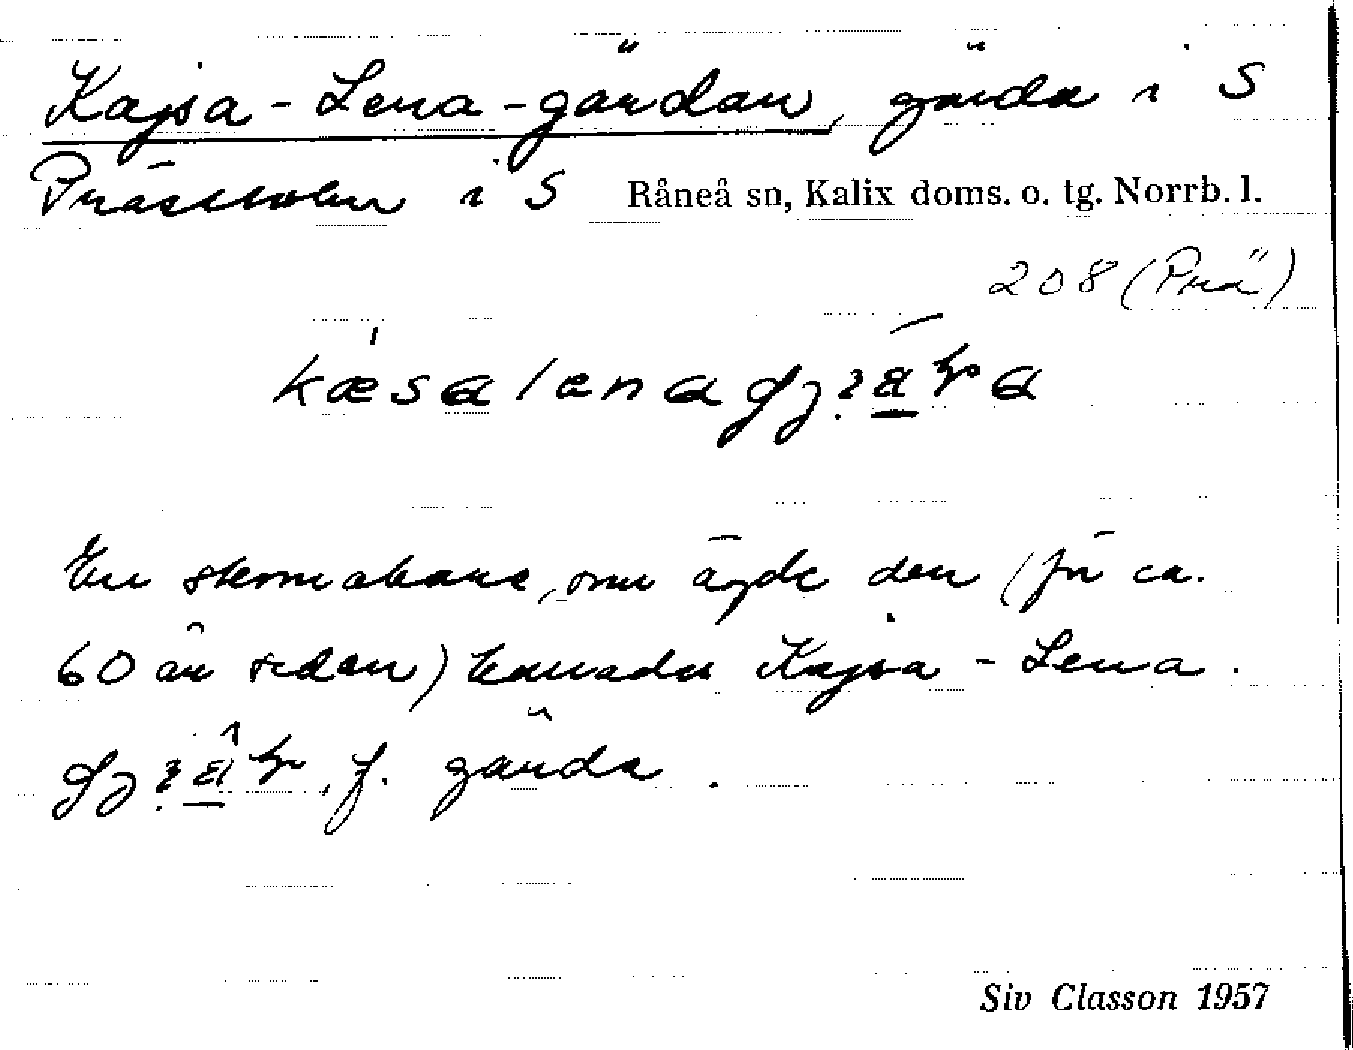 Kajsa-Lena-gärdan, gärda i S
Prästholm i S Råneå sn, Kalix doms. o. tg. Norrb. l.
208 (Prä)
En stornabane, som ägde den (för ca.
60 år sedan) kallades Kajsa-Lena.
f. gärda.
Siv Classon 1957